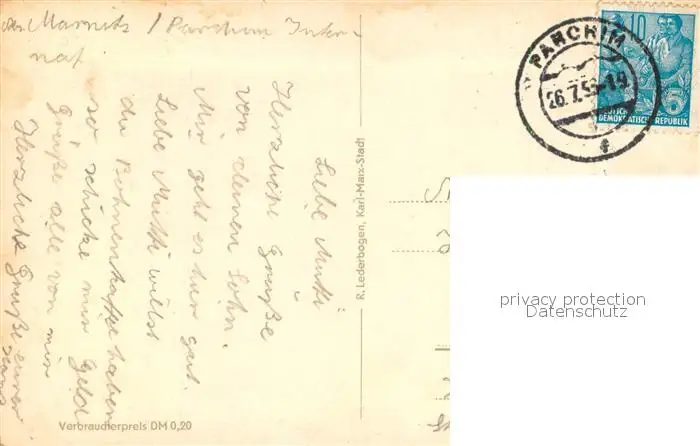 Marnitz / Parchim Inter-
nat.
Liebe Mutti
Herzliche Grüße
von deinen Sohn.
Mir geht es hier gut.
Liebe Mutti willst
du Bohnenkaffe haben
so schicke mir Geld
Grüße alle von mir
Herzliche Grüße
Verbraucherpreis DM 0,20
R. Lederbogen, Karl-Marx-Stadt
PARCHIM
26.7.
10
5
DEUTSCHE
DEMOKRATISCHE REPUBLIK
privacy protection
Datenschutz